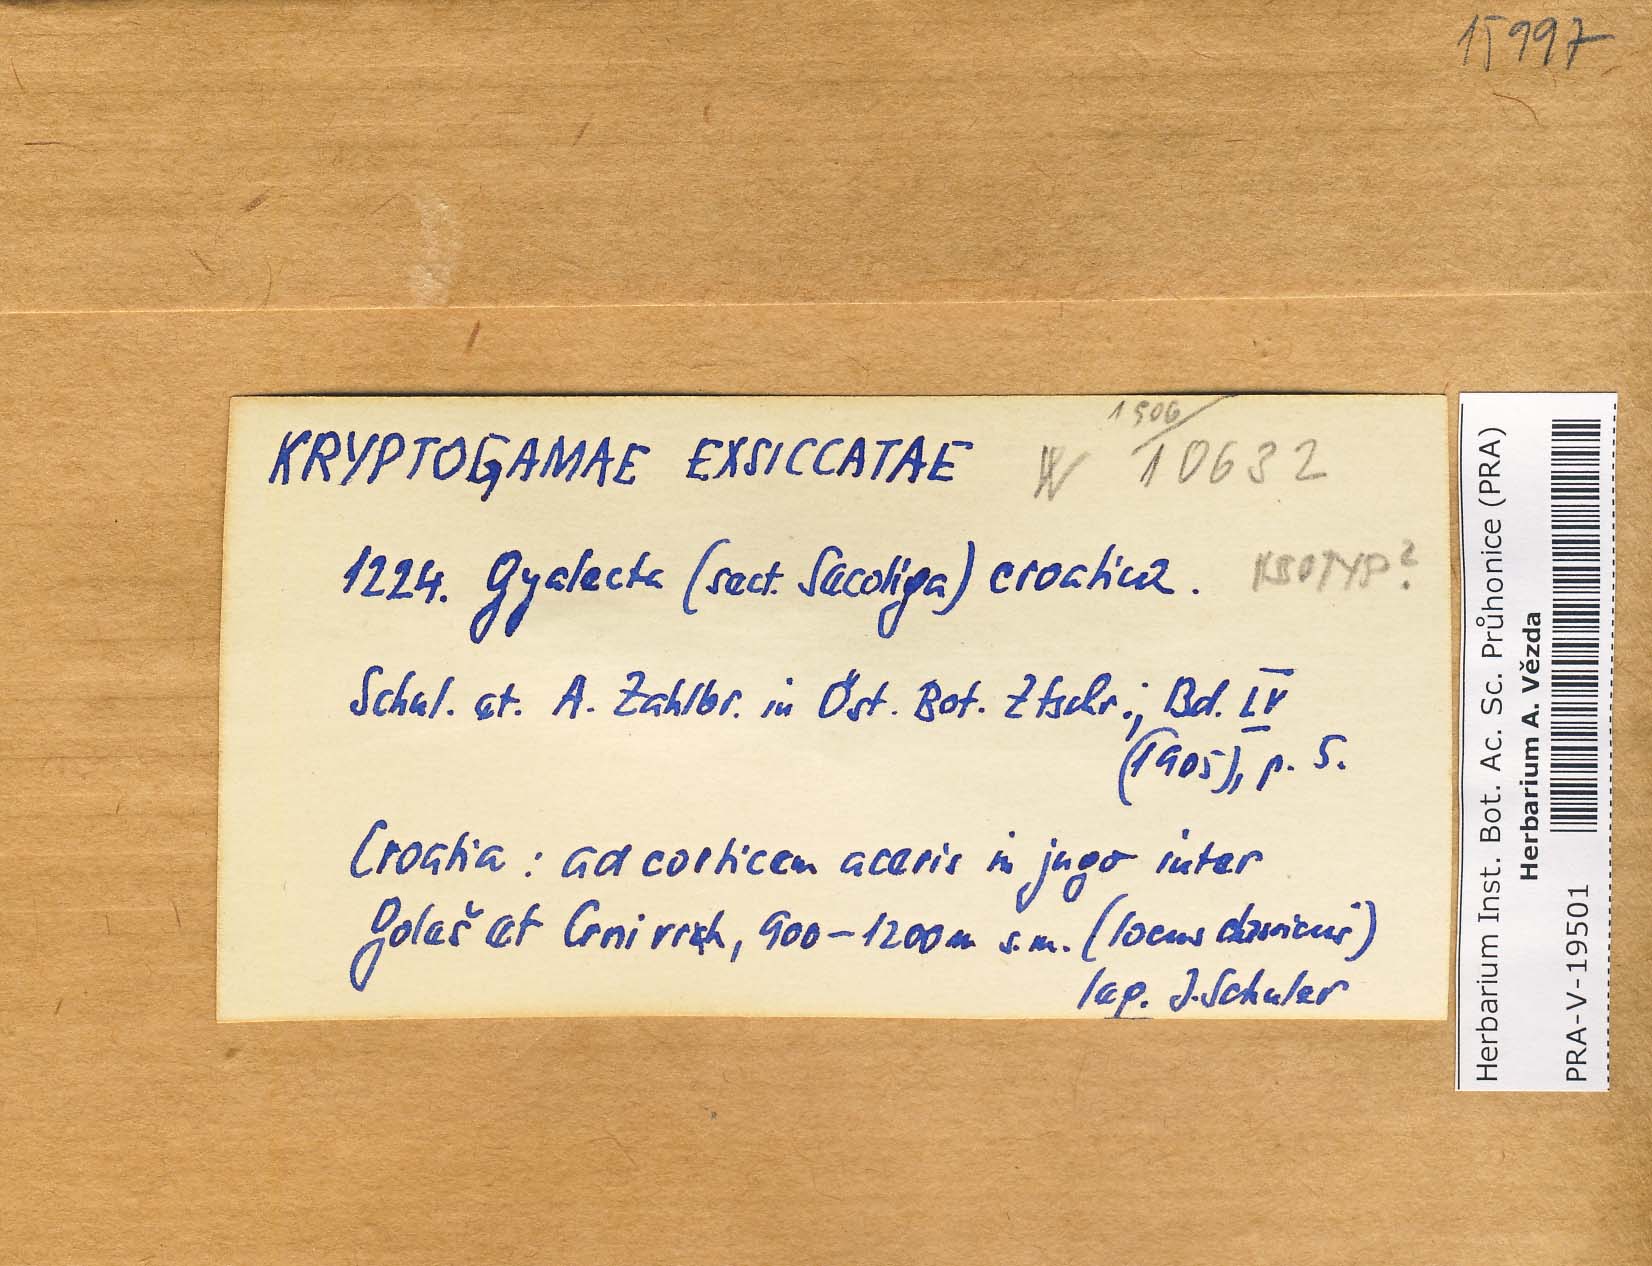 15997
1906
KRYPTOGAMAE EXSICCATAE W 10632
1224. Gyalecta (sect. Secoliga) croatica. ISOTYP?
Schul. et. A. Zahlbr. in Öst. Bot. Ztschr.; Bd. LV
(1905), p. 5.
Croatia: ad corticem aceris in jugo inter
Goleš et Crni vrch, 900-1200m s.m. (locus classicus)
leg. J. Schuler
Herbarium Inst. Bot. Ac. Sc. Průhonice (PRA)
Herbarium A. Vězda
PRA-V-19501